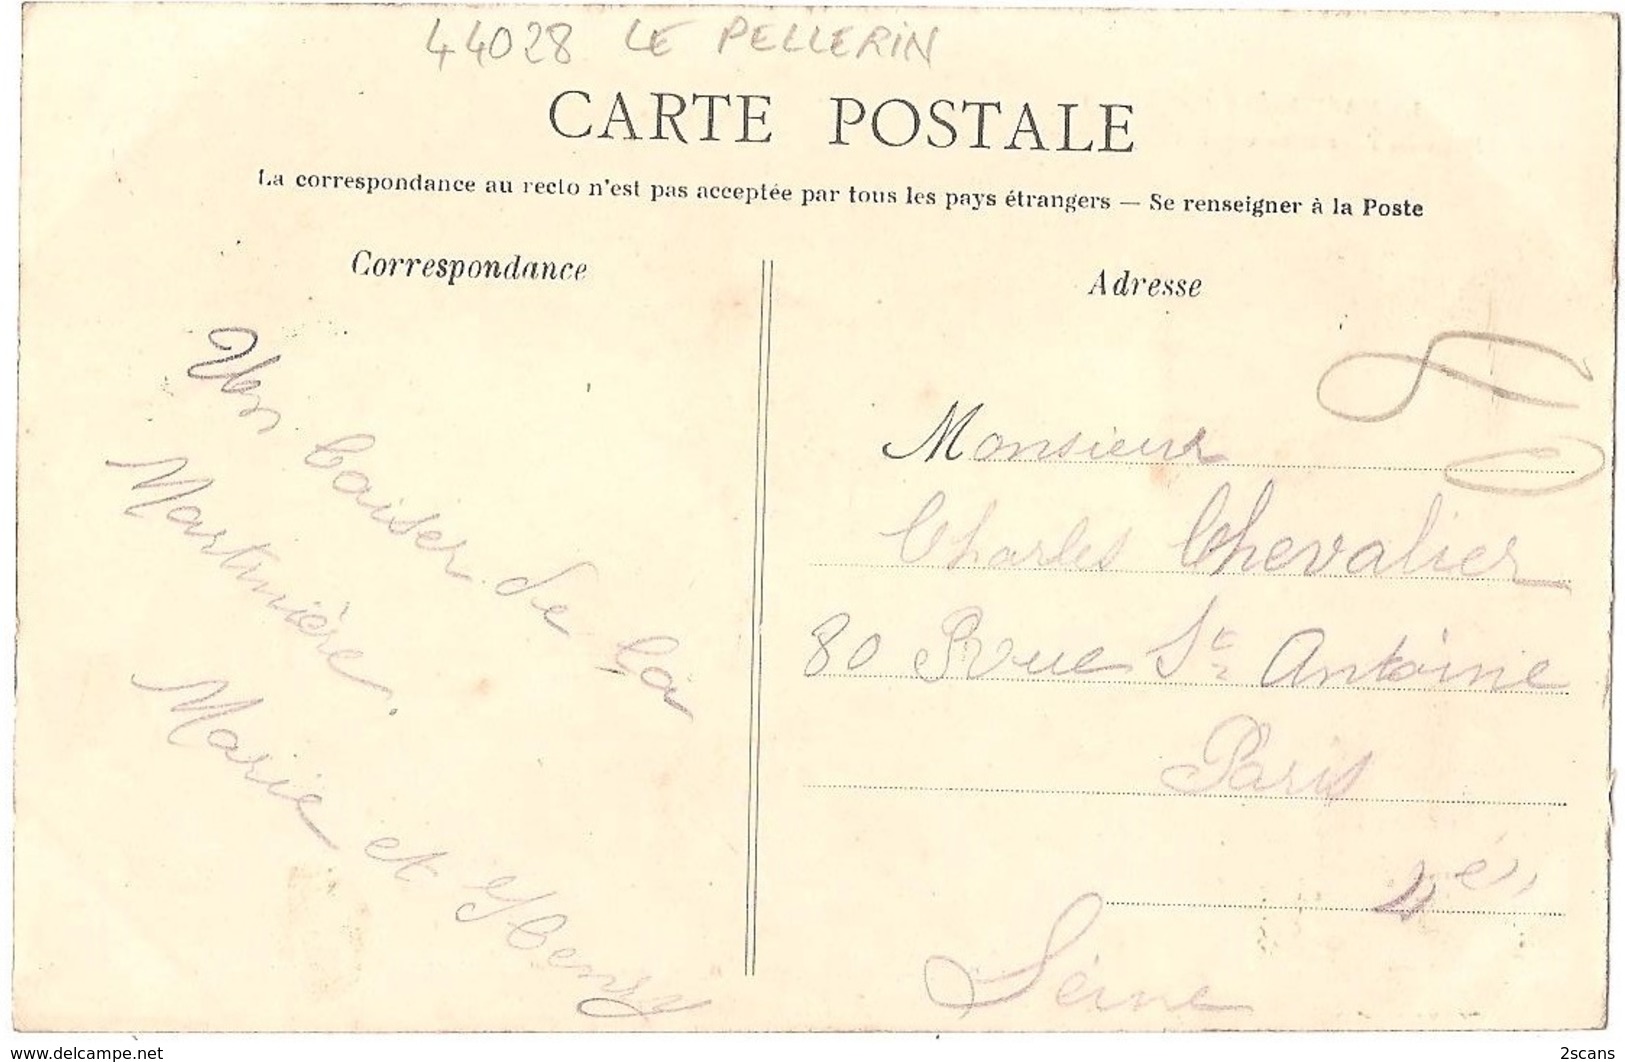 44028 LE PELLERIN
CARTE POSTALE
La correspondance au recto n'est pas acceptée par tous les pays étrangers — Se renseigner à la Poste
Correspondance
Un baiser de la
Martinière.
Marie et Henry
Adresse
Monsieur
Charles Chevalier
80 Rue St Antoine
Paris
Seine
www.delcampe.net
2scans